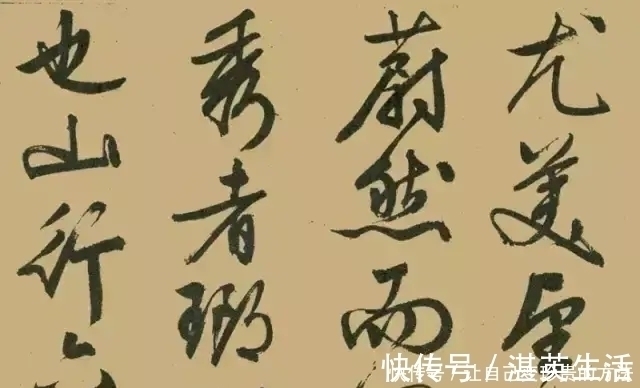 尤美望
蔚然而
秀者瑯
也山行
快传号／湛英生活